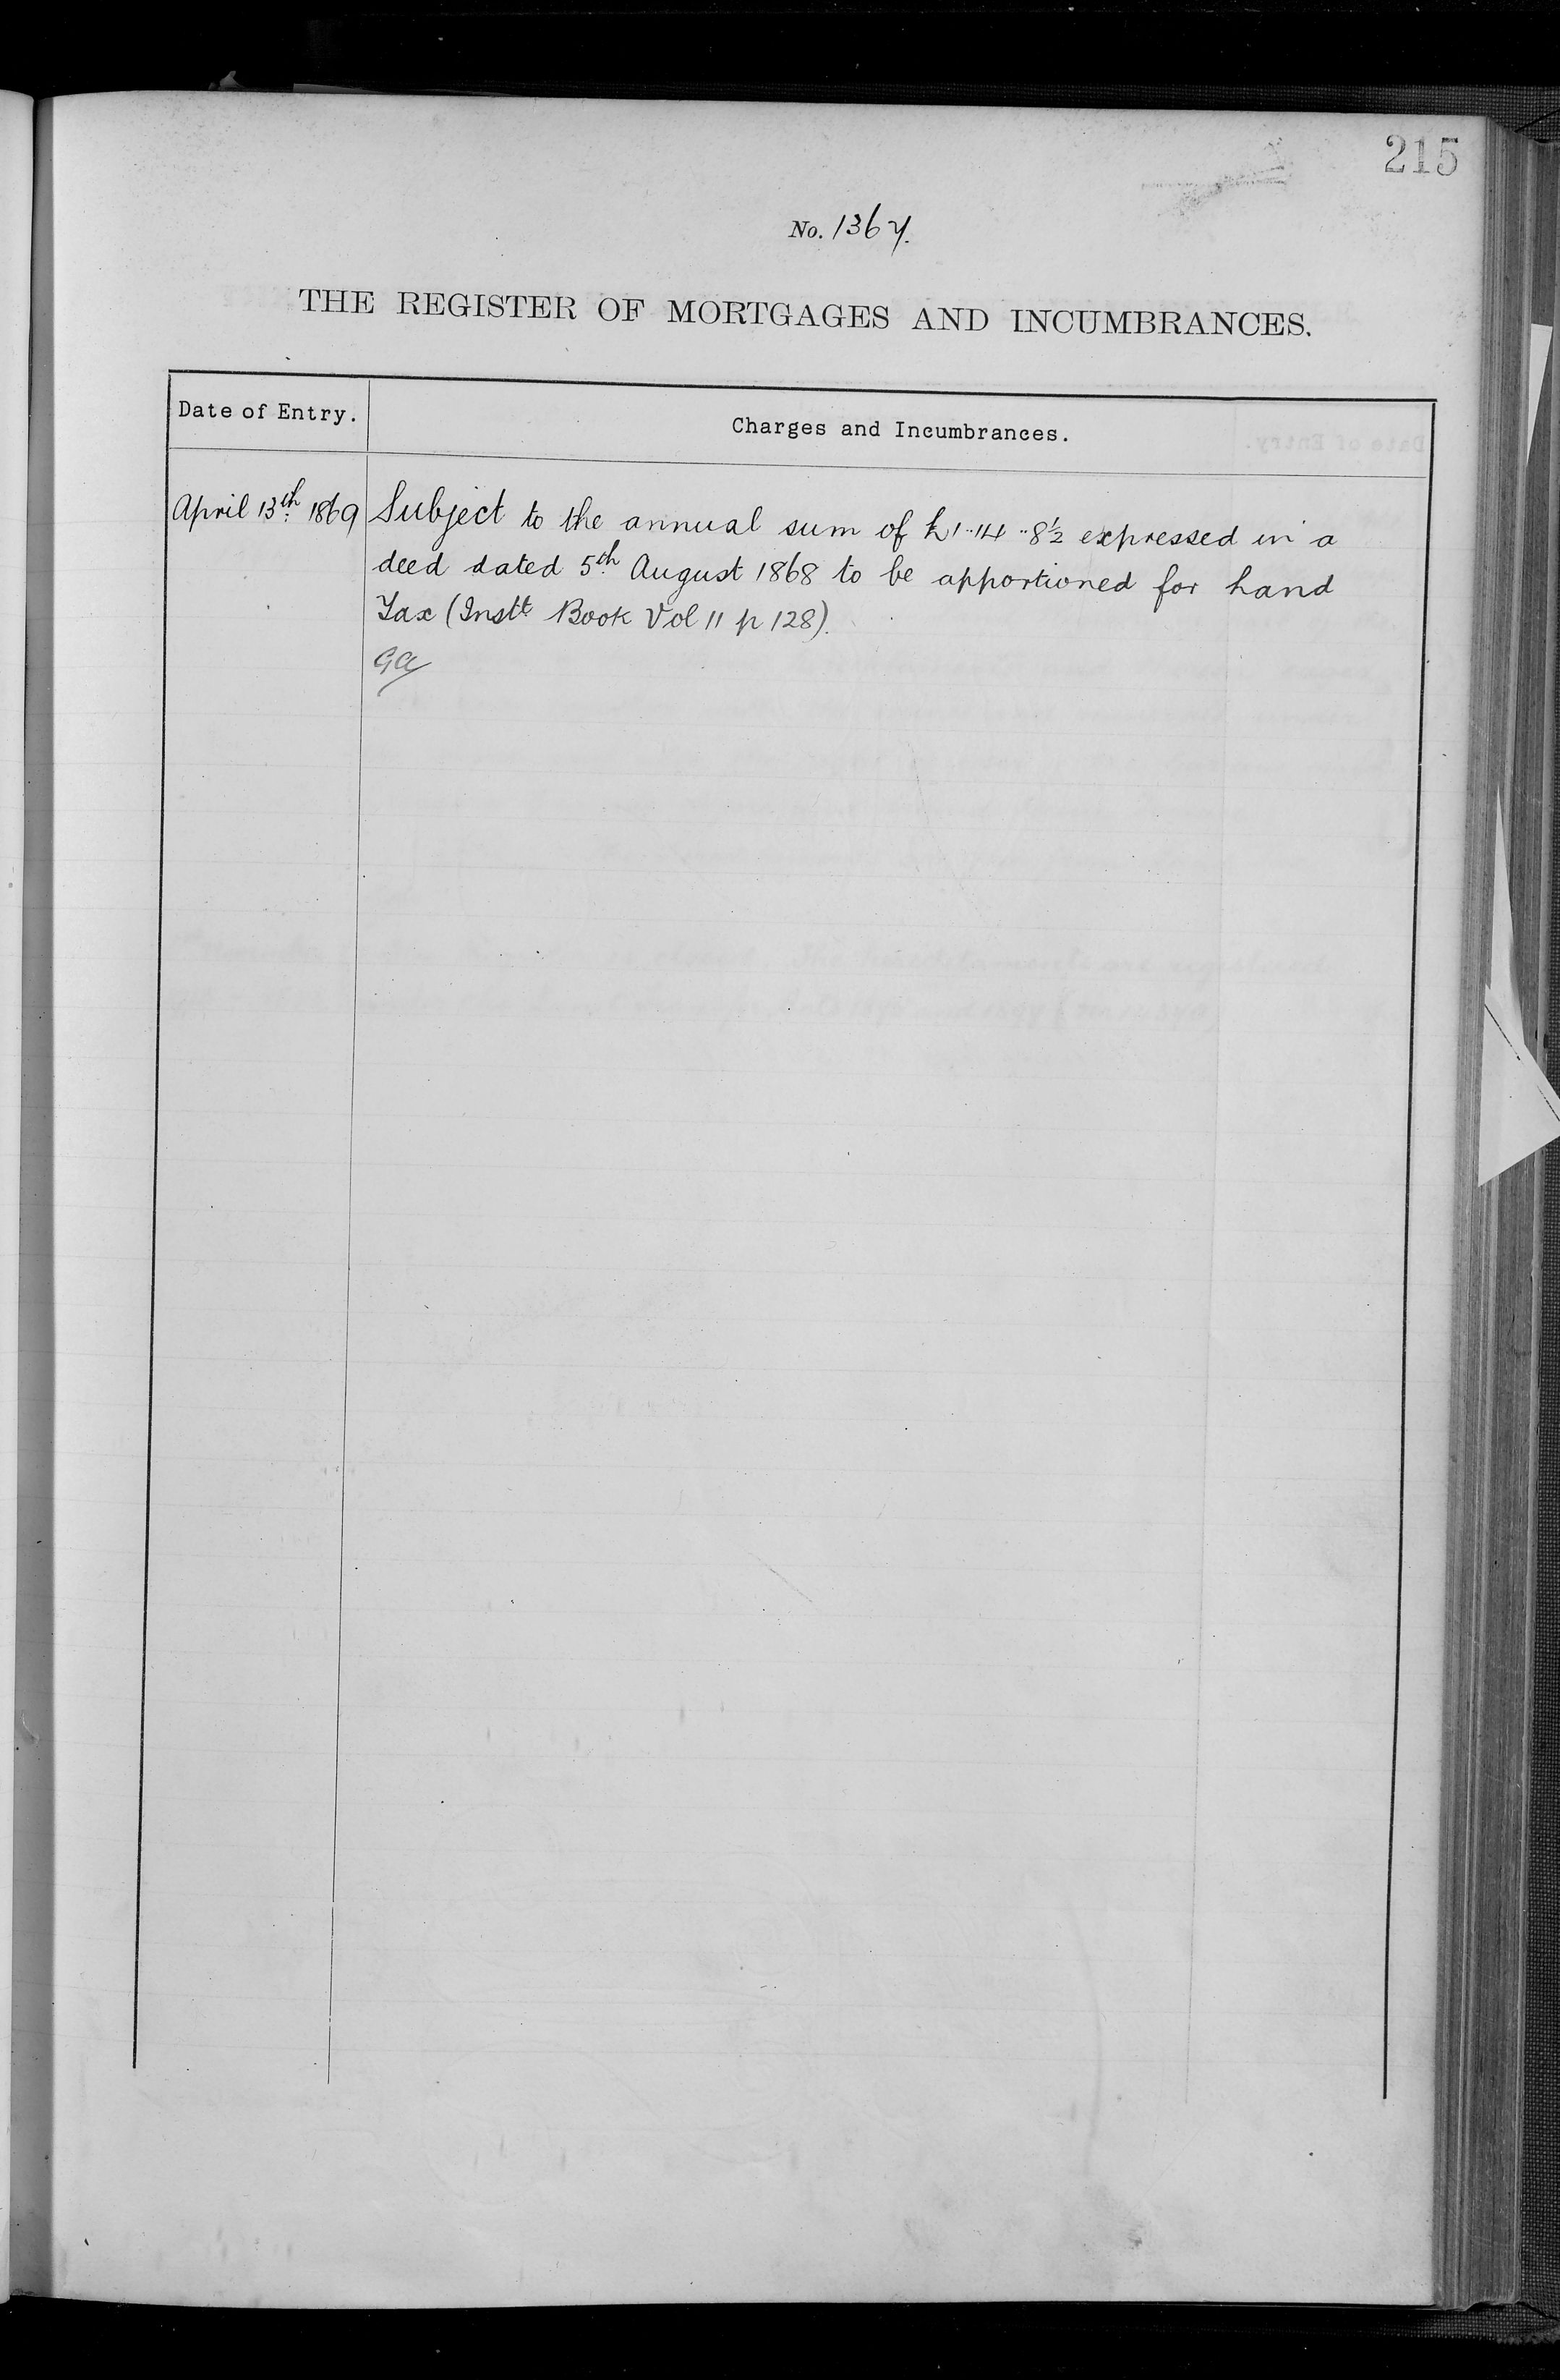 215
No. 1367.
THE REGISTER OF MORTGAGES AND INCUMBRANCES.
Date of Entry.
Charges and Incumbrances.
April 13th 1869
Subject to the annual sum of £1..14..8½ expressed in a
deed dated 5th August 1868 to be apportioned for Land
Tax (Instt Book Vol 11 p 128).
GA